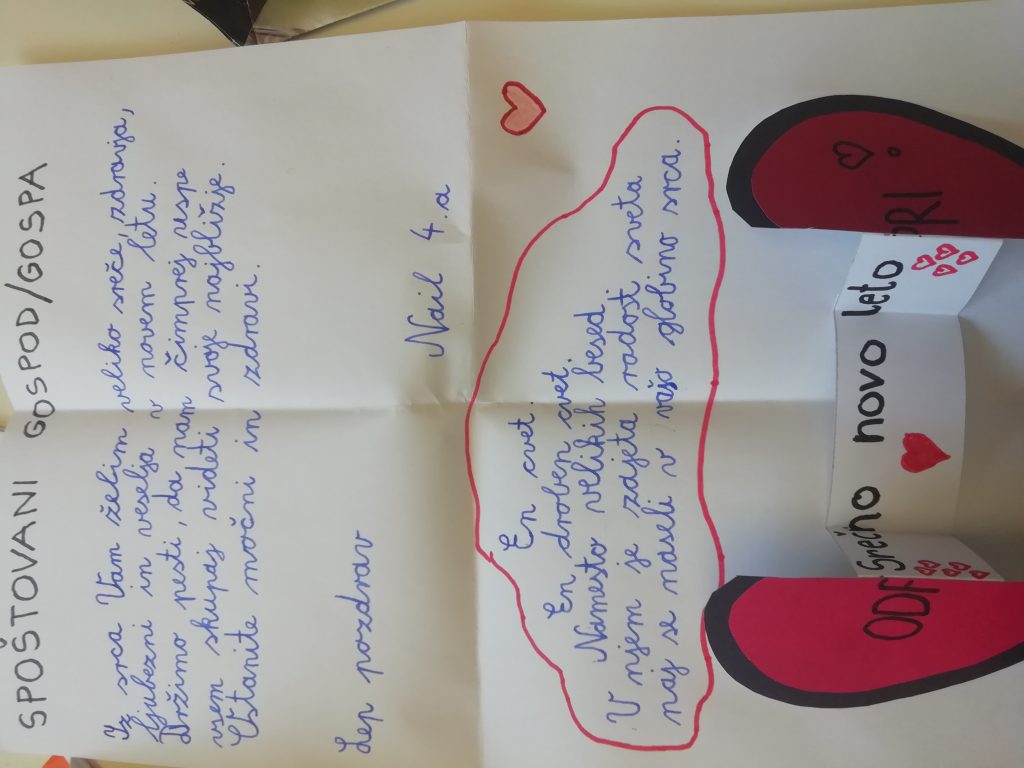 SPOŠTOVANI GOSPOD/GOSPA
Iz srca Vam želim veliko sreče, zdravja,
ljubezni in veselja v novem letu.
Držimo pesti, da nam čimprej uspe
vsem skupaj videti svoje najbližje.
Ostanite močni in zdravi.
Lep pozdrav
Nail 4.a
En cvet.
En droben cvet.
Namesto velikih besed.
V njem je zdjeta radost sveta
naj se naseli v vašo globino srca.
ODPRI
Srečno novo leto